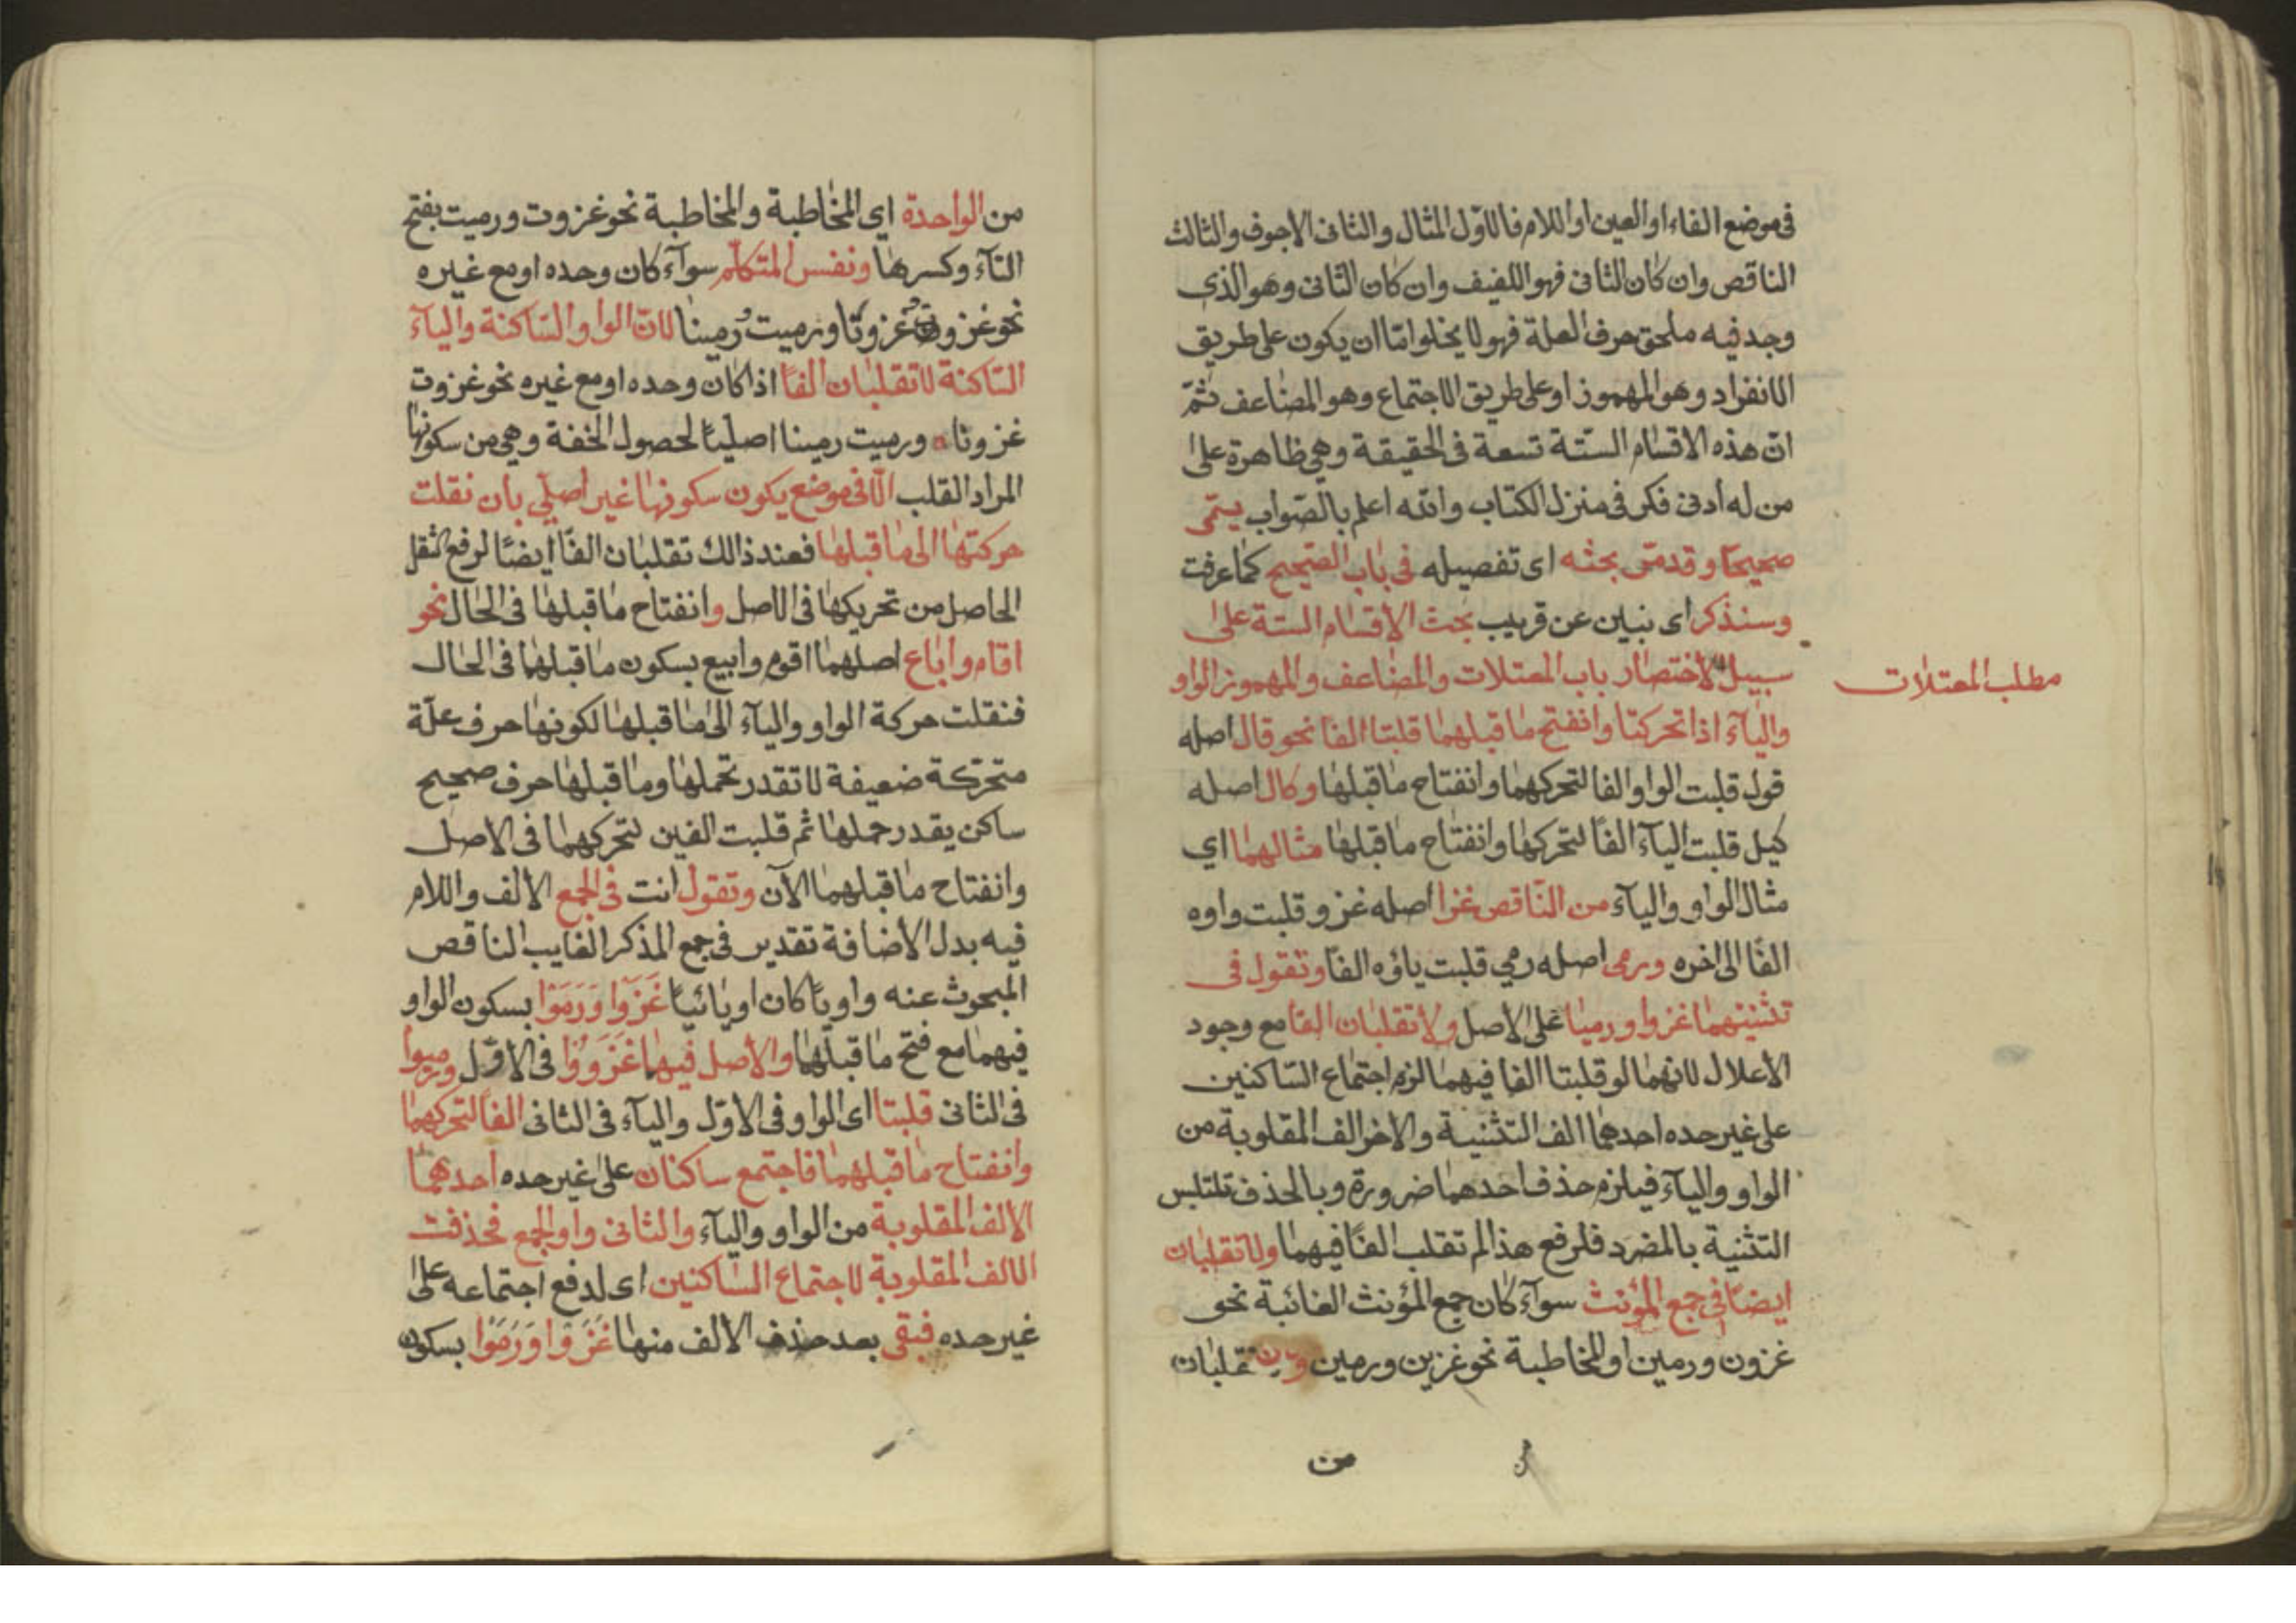 فى موضع الفاء او العين او اللام فالاوّل المثال والثانى الاجوف والثالث
الناقص وان كان الثانى فهو اللفيف وان كان الثانى وهو الذى
وجد فيه ملحق حرف العلة فهو لا يخلوا امّا ان يكون على طريق
الانفراد وهو المهموز او على طريق الاجتماع وهو المضاعف ثمّ
انّ هذه الاقسام الستّة تسعة فى الحقيقة وهى ظاهرة على
من له أدنى فكر فى منزل الكتاب والله اعلم بالصّواب يسمّى
صحيحًا وقد مرّ بحثه اى تفصيله فى باب الصّحيح كما عرفت
وسنذكر اى نبين عن قريب بحث الاقسام الستة على
سبيل الاختصار باب المعتلات والمضاعف والمهموز الواو
مطلب المعتلات
والياء اذا تحركتا وانفتح ما قبلهما قلبتا الفا نحو قال اصله
قول قلبت الواو الفا لتحركهما وانفتاح ما قبلها وكال اصله
كيل قلبت الياء الفًا لتحركها وانفتاح ما قبلها مثالهما اي
مثال الواو والياء من النّاقص غزا اصله غزو قلبت واوه
الفًا الى اخره ورمى اصله رمي قلبت ياؤه الفًا وتقول فى
تثنيتهما غزوا ورميا على الاصل ولا تقلبان الفا مع وجود
الاعلال لانهما لو قلبتا الفا فيهما لزم اجتماع السّاكنين
على غير حده احدهما الف التثنية والاخر الف المقلوبة من
الواو والياء فيلزم حذف احدهما ضرورة وبالحذف تلتبس
التثنية بالمفرد فلرفع هذا لم تقلب الفًا فيهما ولا تقلبان
ايضًا فى جمع المؤنث سواء كان جمع المؤنث الغائبة نحو
غزون ورمين او المخاطبة نحو غزين ورمين تقلبان
من
من الواحدة اى المخاطبة والمخاطبة نحو غزوت ورميت بفتح
التاء وكسرها ونفس المتكلّم سواء كان وحده او مع غيره
نحو غزوت غزونا ورميت رمينا لانّ الواو السّاكنة والياء
السّاكنة لا تقلبان الفًا اذا كان وحده او مع غيره نحو غزوت
غزونا ورميت رمينا اصليًا لحصول الخفة وهى من سكونها
المراد القلب الّا فى موضع يكون سكونها غير اصلى بان نقلت
حركتها الى ما قبلها فعند ذالك تقلبان الفًا ايضًا لرفع الثقل
الحاصل من تحريكها فى الاصل وانفتاح ما قبلها فى الحال نحو
اقام واباع اصلهما اقوم وابيع بسكون ما قبلهما فى الحال
فنقلت حركة الواو والياء الى ما قبلها لكونها حرف علّة
متحرّكة ضعيفة لا تقدر تحملها وما قبلها حرف صحيح
ساكن يقدر حملها ثم قلبت الفين لتحركهما فى الاصل
وانفتاح ما قبلهما الآن وتقول انت فى الجمع الالف واللام
فيه بدل الاضافة تقدير فى جمع المذكر الغايب الناقص
المبحوث عنه واويًا كان او يائيًا غَزَوْا وَرَمَوْا بسكون الواو
فيهما مع فتح ما قبلهما والاصل فيهما غَزَوُوْا فى الاوّل ورميوا
فى الثانى قلبتا اى الواو فى الاوّل والياء فى الثانى الفًا لتحركهما
وانفتاح ما قبلهما فاجتمع ساكنان على غير حده احدهما
الالف المقلوبة من الواو والياء والثانى واو الجمع فحذفت
الالف المقلوبة لاجتماع السّاكنين اى لدفع اجتماعه على
غير حده فبقى بعد حذف الالف منها غَزَوْا وَرَمَوْا بسكون